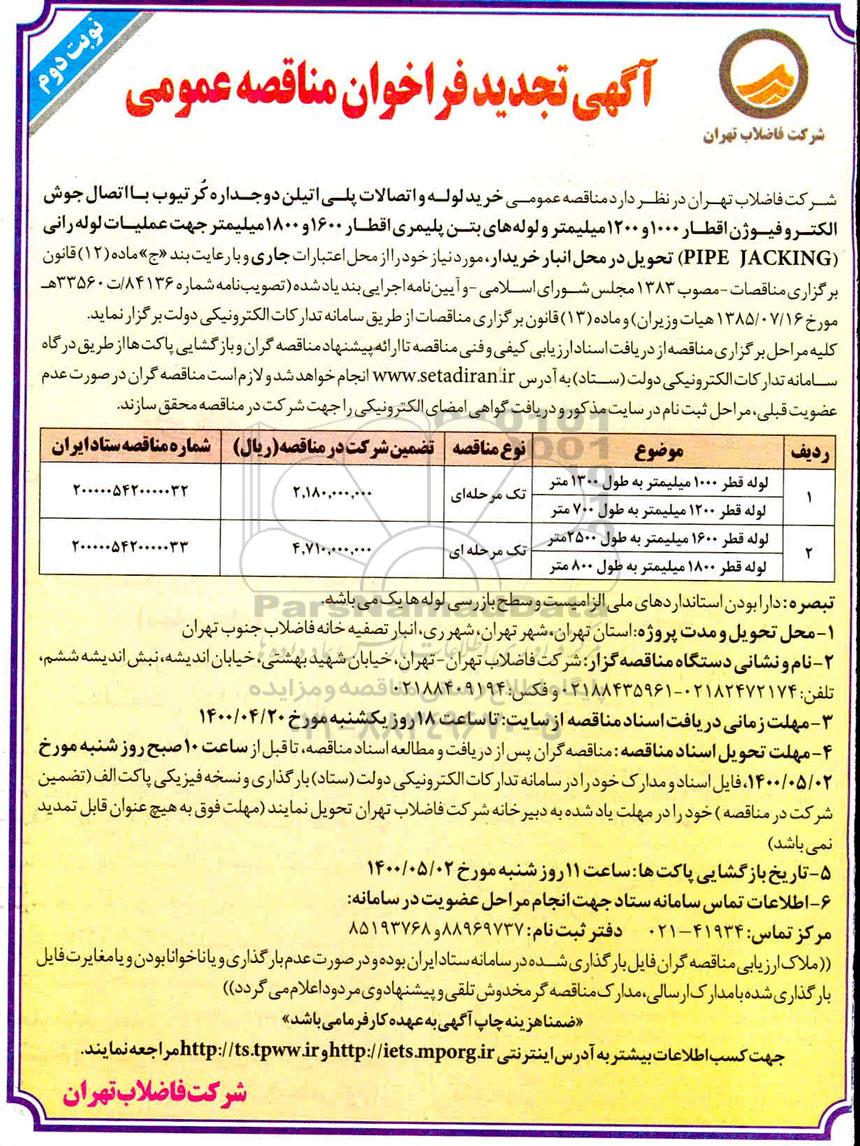 نوبت دوم
آگهی تجدید فراخوان مناقصه عمومی
شرکت فاضلاب تهران
شرکت فاضلاب تهران در نظر دارد مناقصه عمومی خرید لوله و اتصالات پلی اتیلن دوجداره کُرتیوب با اتصال جوش
الکتروفیوژن اقطار ۱۰۰۰ و ۱۲۰۰ میلیمتر و لوله های بتن پلیمری اقطار ۱۶۰۰ و ۱۸۰۰ میلیمتر جهت عملیات لوله رانی
(PIPE JACKING) تحویل در محل انبار خریدار، مورد نیاز خود را از محل اعتبارات جاری و با رعایت بند «ج» ماده (۱۲) قانون
برگزاری مناقصات - مصوب ۱۳۸۳ مجلس شورای اسلامی - و آیین نامه اجرایی بند یاد شده (تصویب نامه شماره ۸۴۱۳۶/ت ۳۳۵۶۰هـ
مورخ ۱۳۸۵/۰۷/۱۶ هیات وزیران) و ماده (۱۳) قانون برگزاری مناقصات از طریق سامانه تدارکات الکترونیکی دولت برگزار نماید.
کلیه مراحل برگزاری مناقصه از دریافت اسناد ارزیابی کیفی و فنی مناقصه تا ارائه پیشنهاد مناقصه گران و بازگشایی پاکت ها از طریق درگاه
سامانه تدارکات الکترونیکی دولت (ستاد) به آدرس www.setadiran.ir انجام خواهد شد و لازم است مناقصه گران در صورت عدم
عضویت قبلی، مراحل ثبت نام در سایت مذکور و دریافت گواهی امضای الکترونیکی را جهت شرکت در مناقصه محقق سازند.
ردیف موضوع نوع مناقصه تضمین شرکت در مناقصه (ریال) شماره مناقصه ستاد ایران
۱ لوله قطر ۱۰۰۰ میلیمتر به طول ۱۳۰۰ متر تک مرحله‌ای ۲,۱۸۰,۰۰۰,۰۰۰ ۲۰۰۰۰۰۵۴۲۰۰۰۰۰۳۲
لوله قطر ۱۲۰۰ میلیمتر به طول ۷۰۰ متر
۲ لوله قطر ۱۶۰۰ میلیمتر به طول ۲۵۰۰ متر تک مرحله ای ۴,۷۱۰,۰۰۰,۰۰۰ ۲۰۰۰۰۰۵۴۲۰۰۰۰۰۳۳
لوله قطر ۱۸۰۰ میلیمتر به طول ۸۰۰ متر
ParsNamadData
تبصره: دارا بودن استانداردهای ملی الزامیست و سطح بازرسی لوله ها یک می باشد.
۱- محل تحویل و مدت پروژه: استان تهران، شهر تهران، شهر ری، انبار تصفیه خانه فاضلاب جنوب تهران
۲- نام و نشانی دستگاه مناقصه گزار: شرکت فاضلاب تهران - تهران، خیابان شهید بهشتی، خیابان اندیشه، نبش اندیشه ششم،
تلفن: ۰۲۱۸۲۴۷۲۱۷۴-۰۲۱۸۸۴۳۵۹۶۱ و فکس: ۰۲۱۸۸۴۰۹۱۹۴
۳- مهلت زمانی دریافت اسناد مناقصه از سایت: تا ساعت ۱۸ روز یکشنبه مورخ ۱۴۰۰/۰۴/۲۰
۴- مهلت تحویل اسناد مناقصه: مناقصه گران پس از دریافت و مطالعه اسناد مناقصه، تا قبل از ساعت ۱۰ صبح روز شنبه مورخ
۱۴۰۰/۰۵/۰۲، فایل اسناد و مدارک خود را در سامانه تدارکات الکترونیکی دولت (ستاد) بارگذاری و نسخه فیزیکی پاکت الف (تضمین
شرکت در مناقصه) خود را در مهلت یاد شده به دبیرخانه شرکت فاضلاب تهران تحویل نمایند (مهلت فوق به هیچ عنوان قابل تمدید
نمی باشد)
۵- تاریخ بازگشایی پاکت ها: ساعت ۱۱ روز شنبه مورخ ۱۴۰۰/۰۵/۰۲
۶- اطلاعات تماس سامانه ستاد جهت انجام مراحل عضویت در سامانه:
مرکز تماس: ۴۱۹۳۴-۰۲۱ دفتر ثبت نام: ۸۸۹۶۹۷۳۷ و ۸۵۱۹۳۷۶۸
((ملاک ارزیابی مناقصه گران فایل بارگذاری شده در سامانه ستاد ایران بوده و در صورت عدم بارگذاری و یا ناخوانا بودن و یا مغایرت فایل
بارگذاری شده با مدارک ارسالی، مدارک مناقصه گر مخدوش تلقی و پیشنهاد وی مردود اعلام می گردد))
«ضمنا هزینه چاپ آگهی به عهده کارفرما می باشد»
جهت کسب اطلاعات بیشتر به آدرس اینترنتی http://iets.mporg.ir و http://ts.tpww.ir مراجعه نمایند.
شرکت فاضلاب تهران